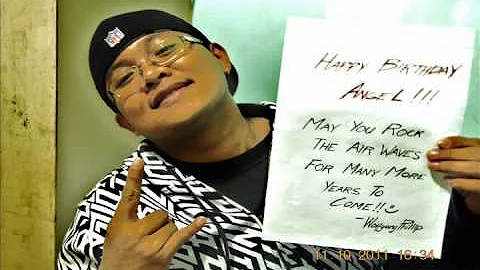 NFL
HAPPY BIRTHDAY
ANGEL!!!
MAY YOU ROCK
THE AIR WAVES
FOR MANY MORE
YEARS TO
COME!!☺
-Wolfgang Phillip
11 10 2011 16:34